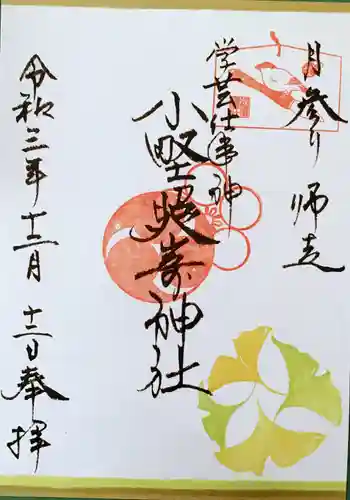 月参り 師走
学芸仕事神
小野照崎神社
令和三年十二月十二日奉拝